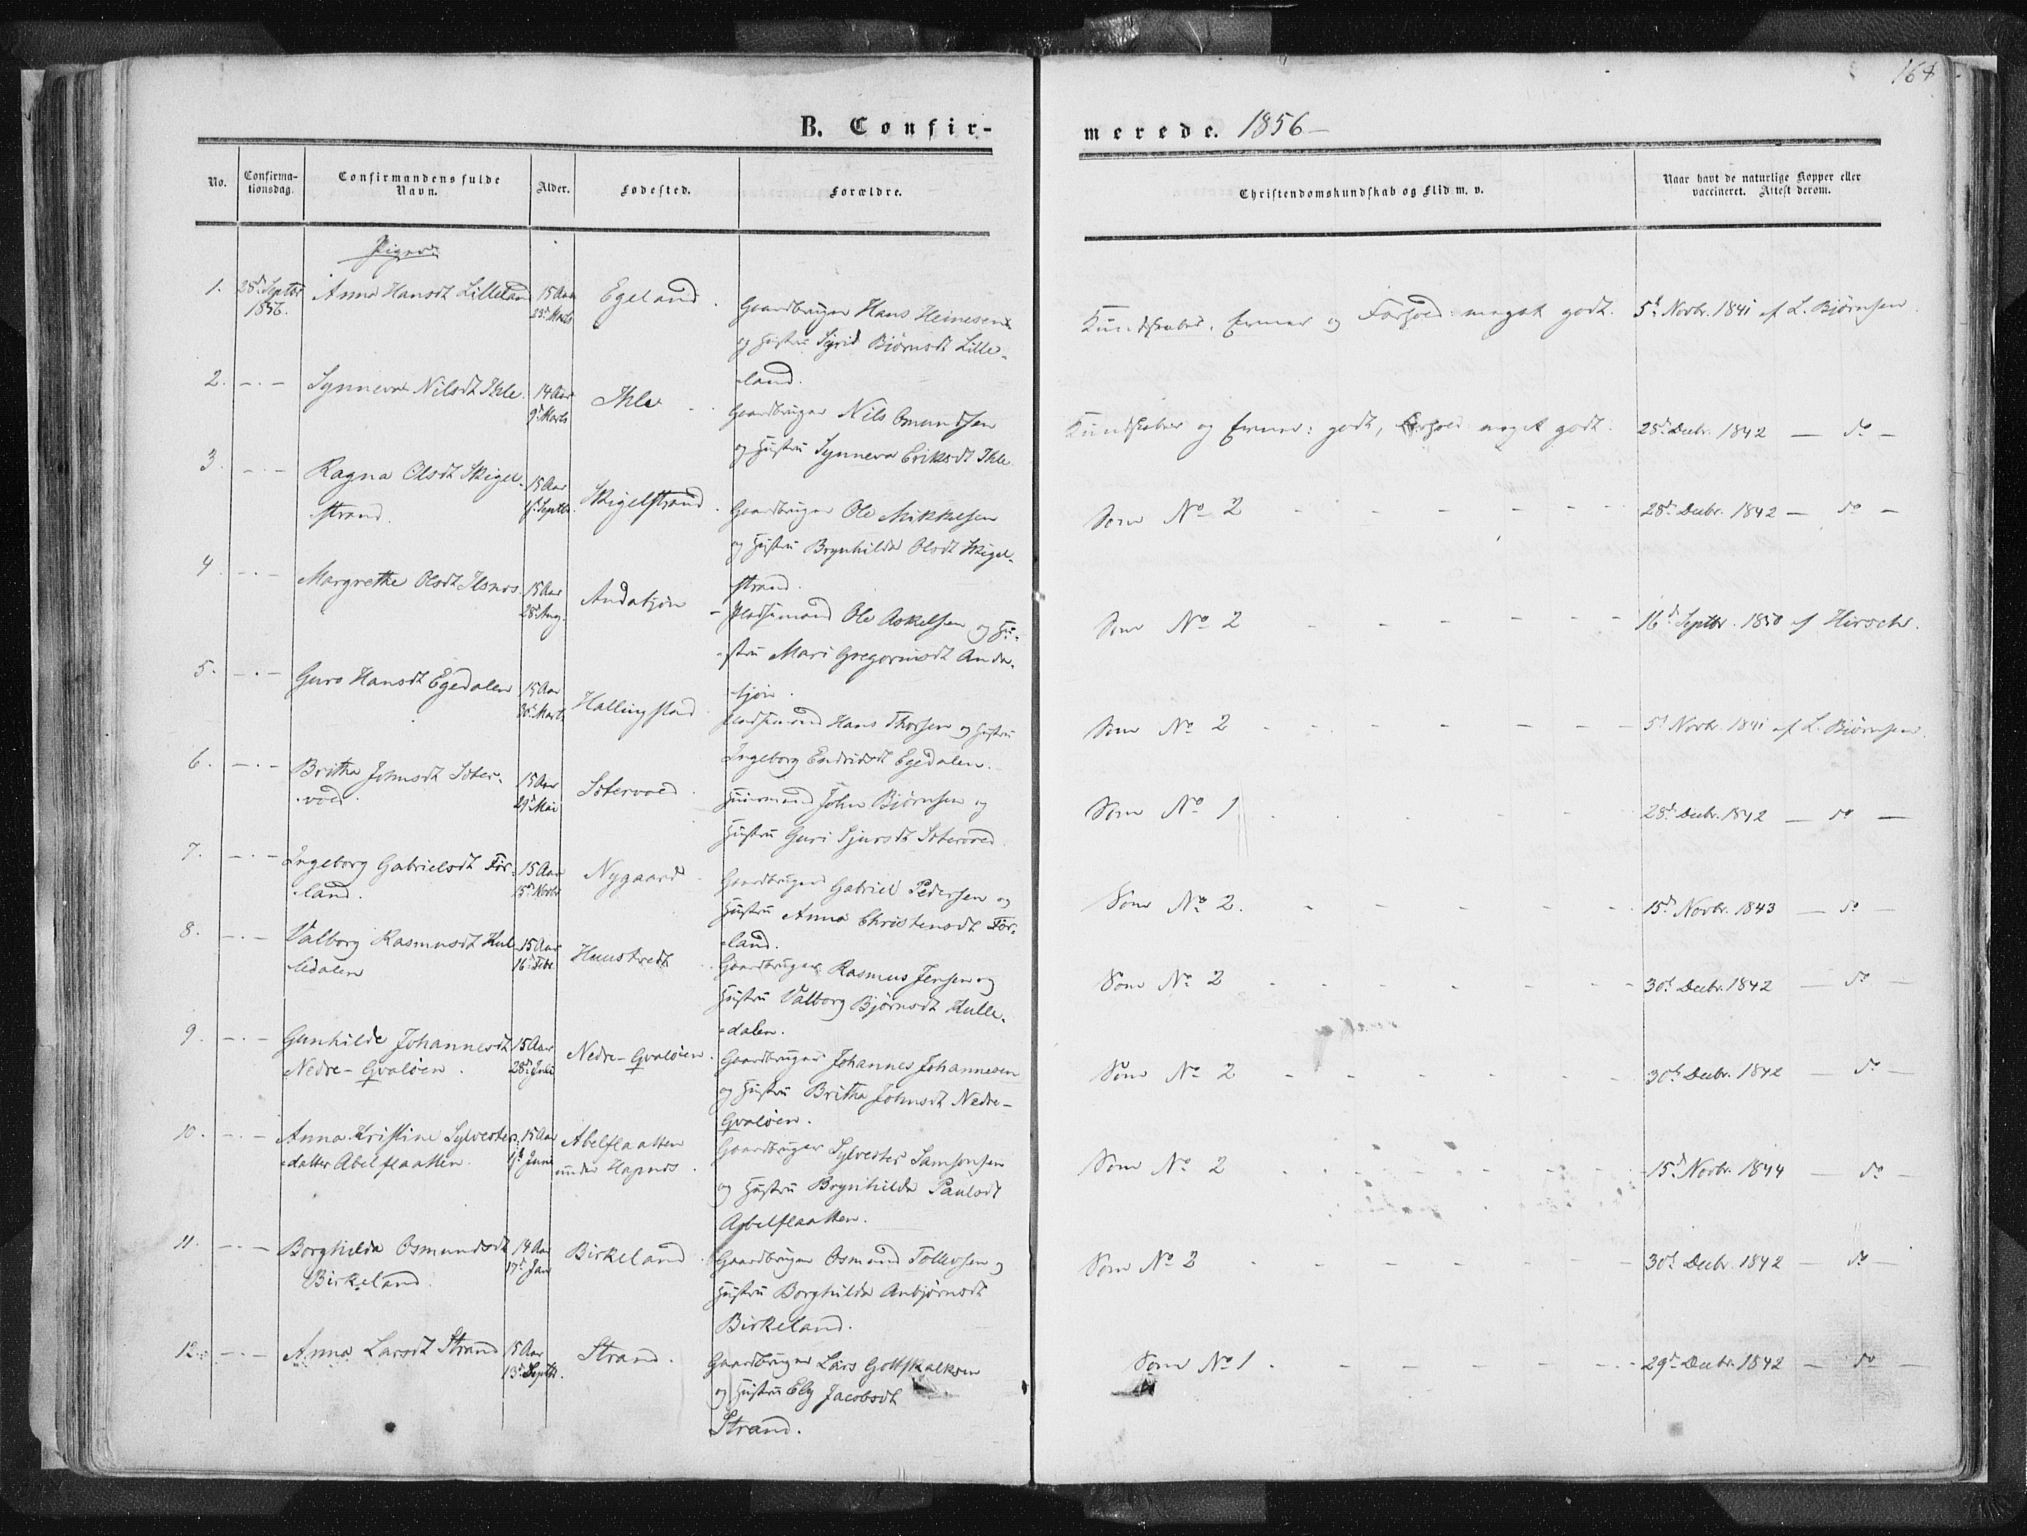 164
B. Confir-
merede. 1856 —
No.
Confirma-
tionsdag.
Confirmandens fulde
Navn.
Alder.
Fødested.
Forældre.
Christendomskundskab og Flid m. v.
Naar havt de naturlige Kopper eller
vaccineret. Attest derom.
Piger
1. 28d Septbr Anna Hansdt Lilleland 15 Aar Egeland.
1856. 23d Marts
Gaardbruger Hans Heinesen
og Hustru Sigrid Bjørnsdt Lille-
land.
Kundskaber, Evner og Forhold: meget godt. 5d Novbr. 1841 af L. Bjørnsen.
2. — . — Synneva Nilsdt Ihle. 14 Aar Ihle
9d Marts
Gaardbruger Nils Omundsen
og Hustru Synneva Eriksdt Ihle
Kundskaber og Evner: godt, Forhold meget godt. 28d Decbr. 1842 — do —
3. — . — Ragna Olsdt Skigel- 15 Aar Skigelstrand.
strand. Septbr.
Gaardbruger Ole Mikkelsen
og Hustru Brynhilda Olsdt Skigel-
strand.
Som No 2 28d Decbr. 1842 — do —
4. — . — Margrethe Olsdt Ilsnes. 15 Aar Andatjøn
28d Aug.
Pladsemand Ole Askelsen og Hu-
stru Mari Gregoriusdt Anda-
tjøn.
Som No 2 16d Septbr. 1850 af Hirsch.
5. — . — Guro Hansdt Egedalen 15 Aar Hallingstad
Marts
Pladsemand Hans Thorsen og Hustru
Ingeborg Endridsdt Egedalen.
Som No 2 5d Novbr. 1841 af L. Bjørnsen.
6. — . — Britha Johnsdt Søter- 15 Aar Søtervoed.
voed. 29d Mai
Huusmand John Bjørnsen og
Hustru Guri Sjursdt Søtervoed
Som No 1 28d Decbr. 1842 — do —
7. — . — Ingeborg Gabrielsdt Før- 15 Aar Nygaard
land. 15d Novbr
Gaardbruger Gabriel Pedersen og
Hustru Anna Christensdt Før-
land.
Som No 2. 15d Novbr. 1843 — do —
8. — . — Valborg Rasmusdt Hul- 15 Aar Huustredt
ledalen 16d Febr
Gaardbruger Rasmus Jensen og
Hustru Valborg Bjørnsdt Hulle-
dalen.
Som No 2 30d Decbr. 1842 — do —
9. — . — Gunhilde Johannesdt 15 Aar Nedre-Qvaløen.
Nedre-Qvaløen. 28d Juli
Gaardbruger Johannes Johannesen
og Hustru Britha Johnsdt Nedre-
Qvaløen.
Som No 2 30d Decbr. 1842 — do —
10. — . — Anna Kristine Sylvester- 15 Aar Abelflaatten
datter Abelflaatten. Juni under Hapnes.
Gaardbruger Sylvester Samsonsen
og Hustru Brynhilda Paulsdt
Abelflaatten.
Som No 2 15d Novbr. 1844 — do —
11. — . — Borghilda Osmundsdt 14 Aar Birkeland.
Birkeland. 17d Jan
Gaardbruger Osmund Tollevsen og
Hustru Borghilda Anbjørnsdt
Birkeland.
Som No 2 30d Decbr. 1842 — do —
12. — . — Anna Larsdt Strand 15 Aar Strand.
13d Septbr.
Gaardbruger Lars Gottskalksen
og Hustru Ely Jacobsdt
Strand.
Som No 1. 29d Decbr. 1842 — do —